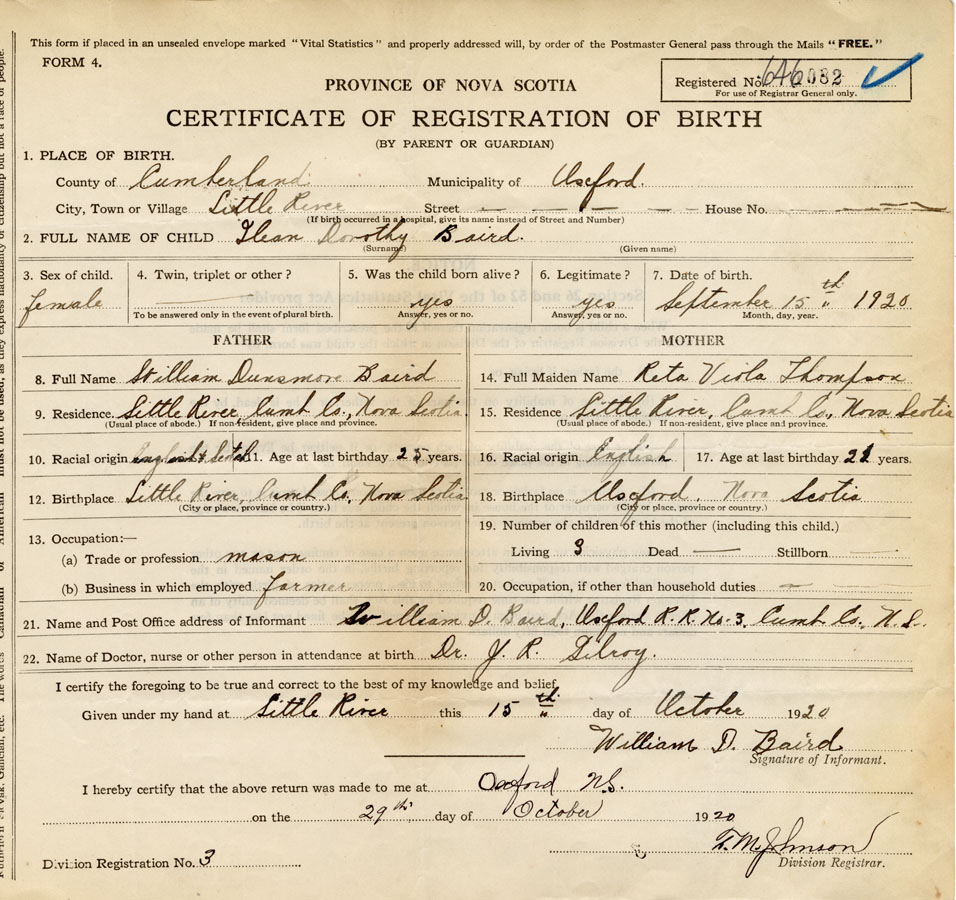 This form if placed in an unsealed envelope marked "Vital Statistics" and properly addressed will, by order of the Postmaster General pass through the Mails "FREE."
FORM 4.
Registered No. 646082
For use of Registrar General only.
PROVINCE OF NOVA SCOTIA
CERTIFICATE OF REGISTRATION OF BIRTH
(BY PARENT OR GUARDIAN)
1. PLACE OF BIRTH.
County of Cumberland Municipality of Oxford.
City, Town or Village Little River Street — — — — House No. — —
(If birth occurred in a hospital, give its name instead of Street and Number)
2. FULL NAME OF CHILD Ilean Dorothy Baird.
(Surname) (Given name)
3. Sex of child. 4. Twin, triplet or other? 5. Was the child born alive? 6. Legitimate? 7. Date of birth.
female — yes yes September 15th 1920
To be answered only in the event of plural birth. Answer, yes or no. Answer, yes or no. Month, day, year.
FATHER MOTHER
8. Full Name William Dunsmore Baird 14. Full Maiden Name Reta Viola Thompson
9. Residence. Little River, Cumt Co., Nova Scotia 15. Residence Little River, Cumt Co., Nova Scotia
(Usual place of abode.) If non-resident, give place and province. (Usual place of abode.) If non-resident, give place and province.
10. Racial origin English & Scotch 11. Age at last birthday 25 years. 16. Racial origin English 17. Age at last birthday years.
12. Birthplace Little River, Cumt Co, Nova Scotia 18. Birthplace Oxford, Nova Scotia
(City or place, province or country.) (City or place, province or country.)
13. Occupation:— 19. Number of children of this mother (including this child.)
(a) Trade or profession mason Living 3 Dead — Stillborn —
(b) Business in which employed farmer 20. Occupation, if other than household duties —
21. Name and Post Office address of Informant William D. Baird, Oxford R.R. No. 3, Cumt Co., N.S.
22. Name of Doctor, nurse or other person in attendance at birth Dr. J. R. Gilroy.
I certify the foregoing to be true and correct to the best of my knowledge and belief,
Given under my hand at Little River this 15th day of October 1920
William D. Baird
Signature of Informant.
I hereby certify that the above return was made to me at Oxford N.S.
on the 29th day of October 1920
T. M. Johnson
Division Registrar.
Division Registration No. 3